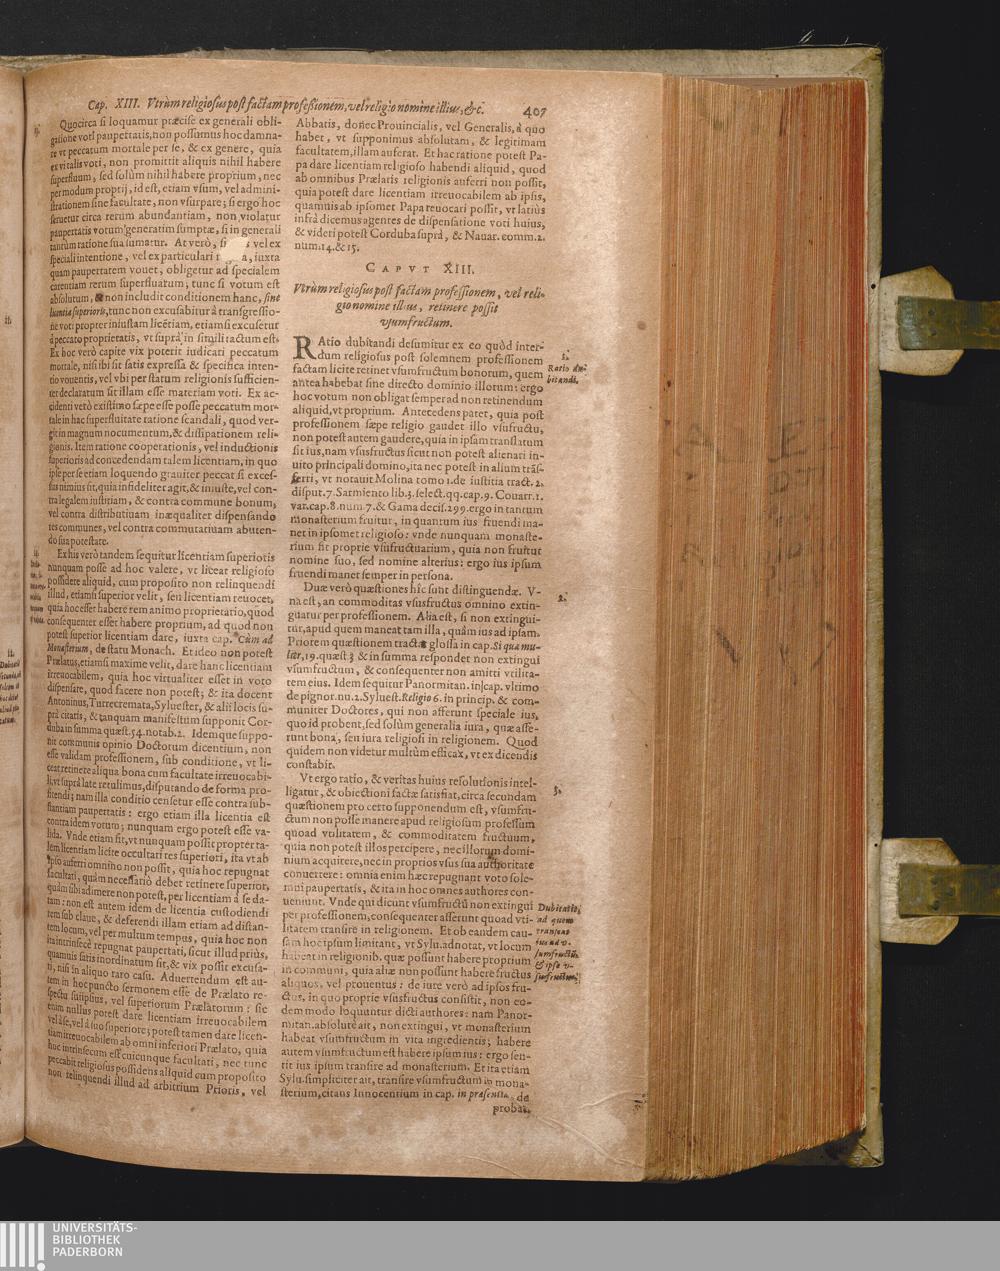 Cap. XIII. Vtrùm religiosus post factam professionem, vel religio nomine illius, &c. 407
Quocirca si loquamur præcise ex generali obli-
gatione voti paupertatis, non possumus hoc damna-
re vt peccatum mortale per se, & ex genere, quia
ex vi talis voti, non promittit aliquis nihil habere
superfluum, sed solùm nihil habere proprium, nec
per modum proprij, id est, etiam vsum, vel admini-
strationem sine facultate, non vsurpare; si ergo hoc
seruetur circa rerum abundantiam, non violatur
paupertatis votum generatim sumptæ, si in generali
tantùm ratione sua sumatur. At verò, si vel ex
speciali intentione, vel ex particulari a, iuxta
quam paupertatem vouet, obligetur ad specialem
carentiam rerum superfluarum; tunc si votum est
absolutum, & non includit conditionem hanc, sine
licentia superioris, tunc non excusabitur à transgressio-
ne voti propter iniustam licẽtiam, etiamsi excusetur
à peccato proprietatis, vt suprà in simili tactum est.
Ex hoc verò capite vix poterit iudicari peccatum
mortale, nisi ibi sit satis expressa & specifica inten-
tio vouentis, vel vbi per statum religionis sufficien-
ter declaratum sit illam esse materiam voti. Ex ac-
cidenti verò existimo sæpe esse posse peccatum mor-
tale in hac superfluitate ratione scandali, quod ver-
git in magnum nocumentum, & dissipationem reli-
gionis. Item ratione cooperationis, vel inductionis
superioris ad concedendam talem licentiam, in quo
ipse per se etiam loquendo grauiter peccat si exces-
sus nimius sit, quia infideliter agit, & iniuste, vel con-
tra legalem iustitiam, & contra commune bonum,
vel contra distributiuam inæqualiter dispensando
res communes, vel contra commutatiuam abuten-
do sua potestate.
Ex his verò tandem sequitur licentiam superioris
nunquam posse ad hoc valere, vt liceat religioso
possidere aliquid, cum proposito non relinquendi
illud, etiamsi superior velit, seu licentiam reuocet,
quia hoc esset habere rem animo proprietario, quod
consequenter esset habere proprium, ad quod non
potest superior licentiam dare, iuxta cap. Cùm ad
Monasterium, de statu Monach. Et ideo non potest
Prælatus, etiamsi maxime velit, dare hanc licentiam
irreuocabilem, quia hoc virtualiter esset in voto
dispensare, quod facere non potest; & ita docent
Antoninus, Turrecremata, Syluester, & alii locis su-
prà citatis, & tanquam manifestum supponit Cor-
duba in summa quæst. 54. notab. 2. Idemque suppo-
nit communis opinio Doctorum dicentium, non
esse validam professionem, sub conditione, vt li-
ceat retinere aliqua bona cum facultate irreuocabi-
li, vt suprà late retulimus, disputando de forma pro-
fitendi; nam illa conditio censetur esse contra sub-
stantiam paupertatis: ergo etiam illa licentia est
contra idem votum; nunquam ergo potest esse va-
lida. Vnde etiam fit, vt nunquam possit propter ta-
lem licentiam licite occultari res superiori, ita vt ab
ipso auferri omnino non possit, quia hoc repugnat
facultati, quàm necessariò debet retinere superior,
quàm sibi adimere non potest, per licentiam à se da-
tam: non est autem idem de licentia custodiendi
rem sub claue, & deferendi illam etiam ad distan-
tem locum, vel per multum tempus, quia hoc non
ita intrinsecè repugnat paupertati, sicut illud prius,
quamuis satis inordinatum sit, & vix possit excusa-
ri, nisi in aliquo raro casu. Aduertendum est au-
tem in hoc puncto sermonem esse de Prælato re-
spectu sui ipsius, vel superiorum Prælatorum: sic
enim nullus potest dare licentiam irreuocabilem
vel à se, vel à suo superiore; potest tamen dare licen-
tiam irreuocabilem ab omni inferiori Prælato, quia
hoc intrinsecum est cuicunque facultati, nec tunc
peccabit religiosus possidens aliquid cum proposito
non relinquendi illud ad arbitrium Prioris, vel
Abbatis, donec Prouincialis, vel Generalis, à quo
habet, vt supponimus absolutam, & legitimam
facultatem, illam auferat. Et hac ratione potest Pa-
pa dare licentiam religioso habendi aliquid, quod
ab omnibus Prælatis religionis auferri non possit,
quia potest dare licentiam irreuocabilem ab ipsis,
quamuis ab ipsomet Papa reuocari possit, vt latiùs
infrà dicemus agentes de dispensatione voti huius,
& videri potest Corduba suprà, & Nauar. comm. 2.
num. 14. & 15.
CAPVT XIII.
Vtrùm religiosus post factam professionem, vel reli-
gio nomine illius, retinere possit
vsumfructum.
RAtio dubitandi desumitur ex eo quòd inter-
dum religiosus post solemnem professionem
factam licite retinet vsumfructum bonorum, quem
antea habebat sine directo dominio illorum: ergo
hoc votum non obligat semper ad non retinendum
aliquid, vt proprium. Antecedens patet, quia post
professionem sæpe religio gaudet illo vsufructu,
non potest autem gaudere, quia in ipsam translatum
sit ius, nam vsusfructus sicut non potest alienari in-
uito principali domino, ita nec potest in alium trãs-
ferri, vt notauit Molina tomo 1. de iustitia tract. 2.
disput. 7. Sarmiento lib. 3. select. qq. cap. 9. Couarr. 1.
var. cap. 8. num. 7. & Gama decis. 299. ergo in tantum
monasterium fruitur, in quantum ius fruendi ma-
net in ipsomet religioso: vnde nunquam monaste-
rium fit proprie vsufructuarium, quia non fruitur
nomine suo, sed nomine alterius: ergo ius ipsum
fruendi manet semper in persona.
Duæ verò quæstiones hîc sunt distinguendæ. V-
na est, an commoditas vsusfructus omnino extin-
guatur per professionem. Alia est, si non extingui-
tur, apud quem maneat tam illa, quàm ius ad ipsam.
Priorem quæstionem tractat glossa in cap. Si qua mu-
lier, 19. quæst. 3. & in summa respondet non extingui
vsumfructum, & consequenter non amitti vtilita-
tem eius. Idem sequitur Panormitan. in cap. vltimo
de pignor. nu. 2. Syluest. Religio 6. in princip. & com-
muniter Doctores, qui non afferunt speciale ius,
quo id probent, sed solùm generalia iura, quæ asse-
runt bona, seu iura religiosi in religionem. Quod
quidem non videtur multùm efficax, vt ex dicendis
constabit.
Vt ergo ratio, & veritas huius resolutionis intel-
ligatur, & obiectioni factæ satisfiat, circa secundam
quæstionem pro certo supponendum est, vsumfru-
ctum non posse manere apud religiosum professum
quoad vtilitatem, & commoditatem fructuum,
quia non potest illos percipere, nec illorum domi-
nium acquirere, nec in proprios vsus sua authoritate
conuertere: omnia enim hæc repugnant voto sole-
mni paupertatis, & ita in hoc omnes authores con-
ueniunt. Vnde qui dicunt vsumfructũ non extingui
per professionem, consequenter asserunt quoad vti-
litatem transire in religionem. Et ob eandem cau-
sam hoc ipsum limitant, vt Sylu. adnotat, vt locum
habeat in religionib. quæ possunt habere proprium
in communi, quia aliæ non possunt habere fructus
aliquos, vel prouentus: de iure verò ad ipsos fru-
ctus, in quo proprie vsusfructus consistit, non eo-
dem modo loquuntur dicti authores: nam Panor-
mitan. absolutè ait, non extingui, vt monasterium
habeat vsumfructum in vita ingredientis; habere
autem vsumfructum est habere ipsum ius: ergo sen-
tit ius ipsum transire ad monasterium. Et ita etiam
Sylu. simpliciter ait, transire vsumfructum in mona-
sterium, citans Innocentium in cap. in præsentia, de
probat.
1.
Ratio du-
bitandi.
2.
3.
Dubitatio,
ad quem
transeat
ius ad v-
sumfructũ,
& ipse v-
susfructus.
UNIVERSITÄTS-
BIBLIOTHEK
PADERBORN